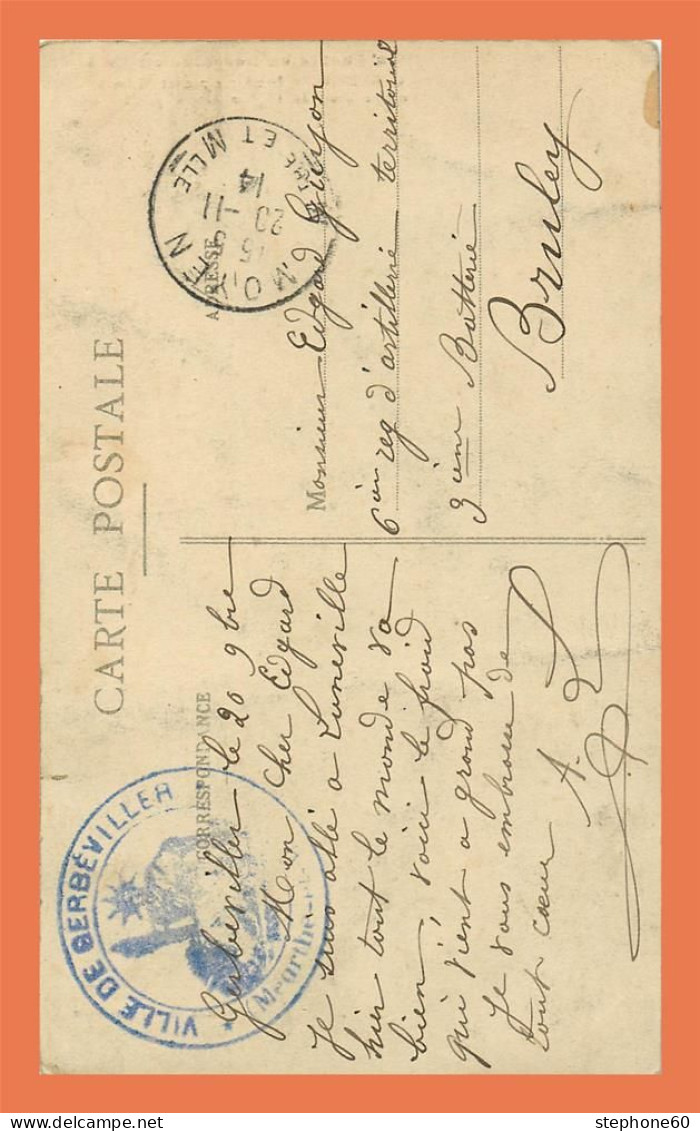 CARTE POSTALE
CORRESPONDANCE
ADRESSE
VILLE DE GERBÉVILLER
(Meurthe
MOYEN
Mthe ET MLLE
15
20 - 11
14
Gerbéviller le 20 9bre
Mon cher Edgard
Je suis allé a Luneville
hier tout le monde va
bien, voici le froid
qui vient a grand pas
Je vous embrasse de
tout cœur
A.
Monsieur Edgard Guyon
6ièm reg d'artillerie territorial
3ième Batterie
Bruley
stephone60